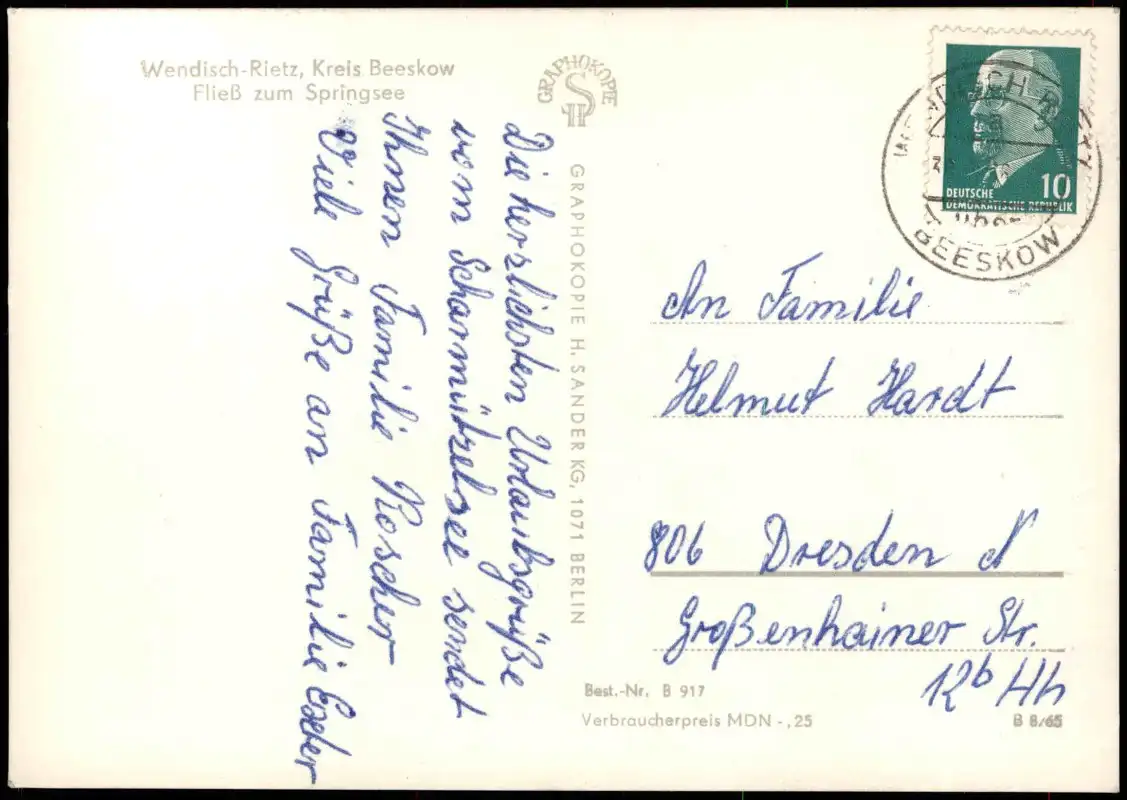 Wendisch-Rietz, Kreis Beeskow
Fließ zum Springsee
Die herzlichsten Urlaubsgrüße
vom Scharmützelsee sendet
Ihnen Familie Roscher
Viele Grüße an Familie
GRAPHOKOPIE
GRAPHOKOPIE H. SANDER KG, 1071 BERLIN
10
DEUTSCHE
DEMOKRATISCHE REPUBLIK
BEESKOW
An Familie
Helmut Hardt
806 Dresden N
Großenhainer Str.
12b Hh
Best.-Nr. B 917
Verbraucherpreis MDN -,25
B 8/65